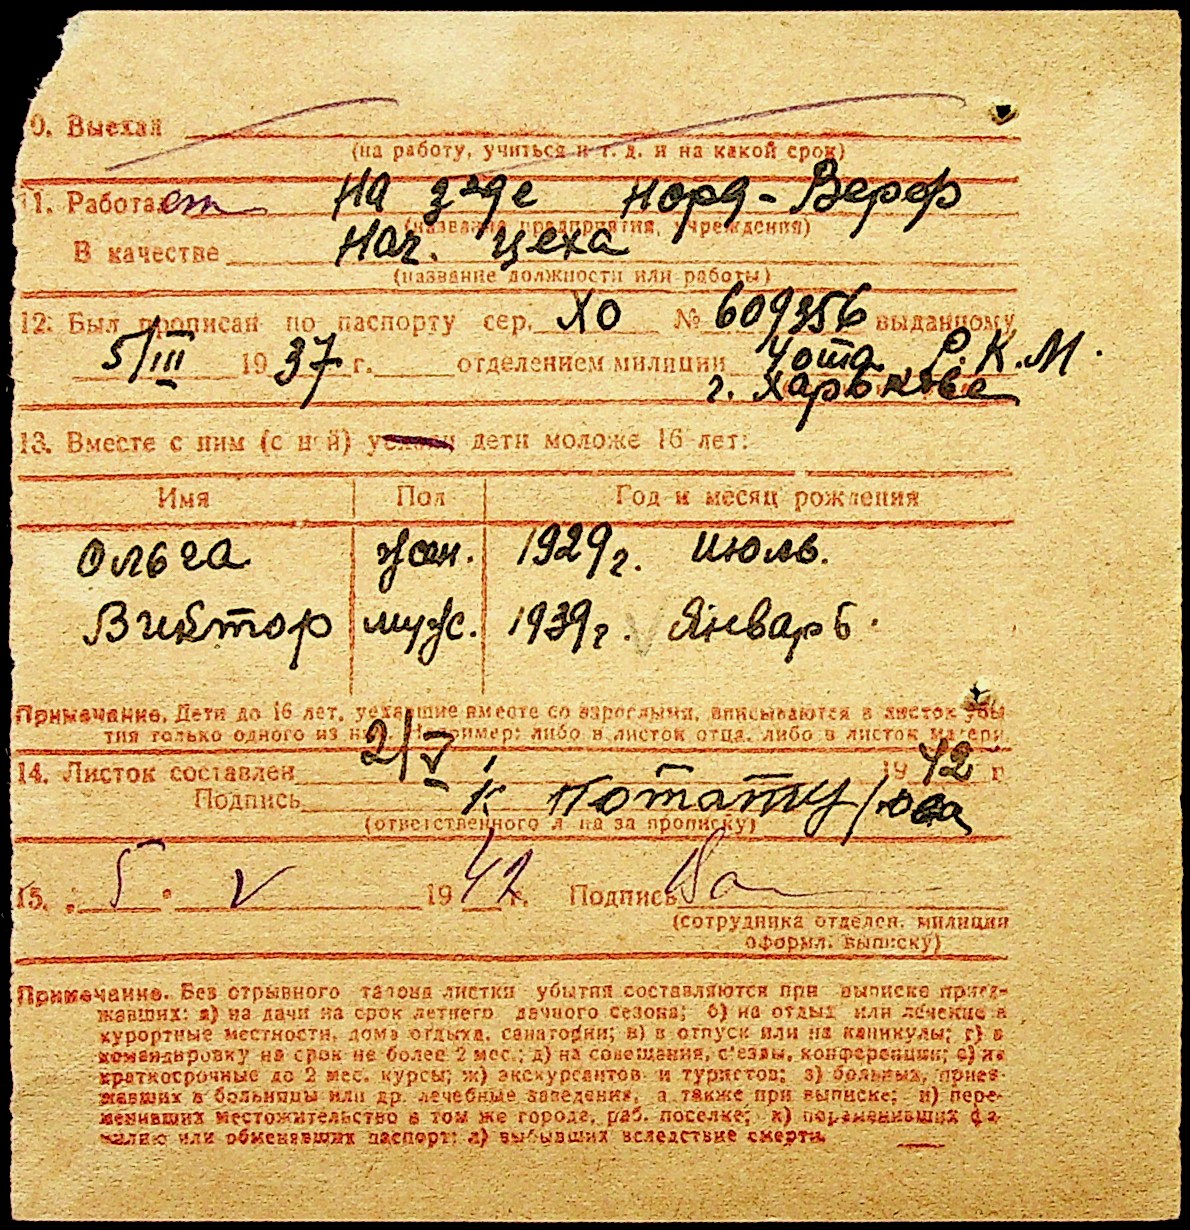 0. Выехал
(на работу, учиться и т. д. и на какой срок)
1. Работает на з-де Норд-Верф
(название предприятия, учреждения)
В качестве Нач. цеха
(название должности или работы)
12. Был прописан по паспорту сер. ХО № 609356 выданному
5/III 1937 г. отделением милиции Р.К.М.
г. Харькове
13. Вместе с ним (с ней) дети моложе 16 лет:
Имя Пол Год и месяц рождения
Ольга жен. 1929 г. июль.
Виктор муж. 1939 г. Январь.
Примечание. Дети до 16 лет, уехавшие вместе со взрослыми, вписываются в листок убы-
тия только одного из них. Например: либо в листок отца, либо в листок матери.
14. Листок составлен 2/V 1942 г.
Подпись
(ответственного лица за прописку)
15. „5" V 1942 г. Подпись
(сотрудника отделен. милиции
оформл. выписку)
Примечание. Без отрывного талона листки убытия составляются при выписке приез-
жавших: а) на дачи на срок летнего дачного сезона; б) на отдых или лечение в
курортные местности, дома отдыха, санатории; в) в отпуск или на каникулы; г) в
командировку на срок не более 2 мес.; д) на совещания, с'езды, конференции; е) на
краткосрочные до 2 мес. курсы; ж) экскурсантов и туристов; з) больных, приез-
жавших в больницы или др. лечебные заведения, а также при выписке; и) пере-
менивших местожительство в том же городе, раб. поселке; к) переменивших фа-
милию или обменявших паспорт; л) выбывших вследствие смерти.